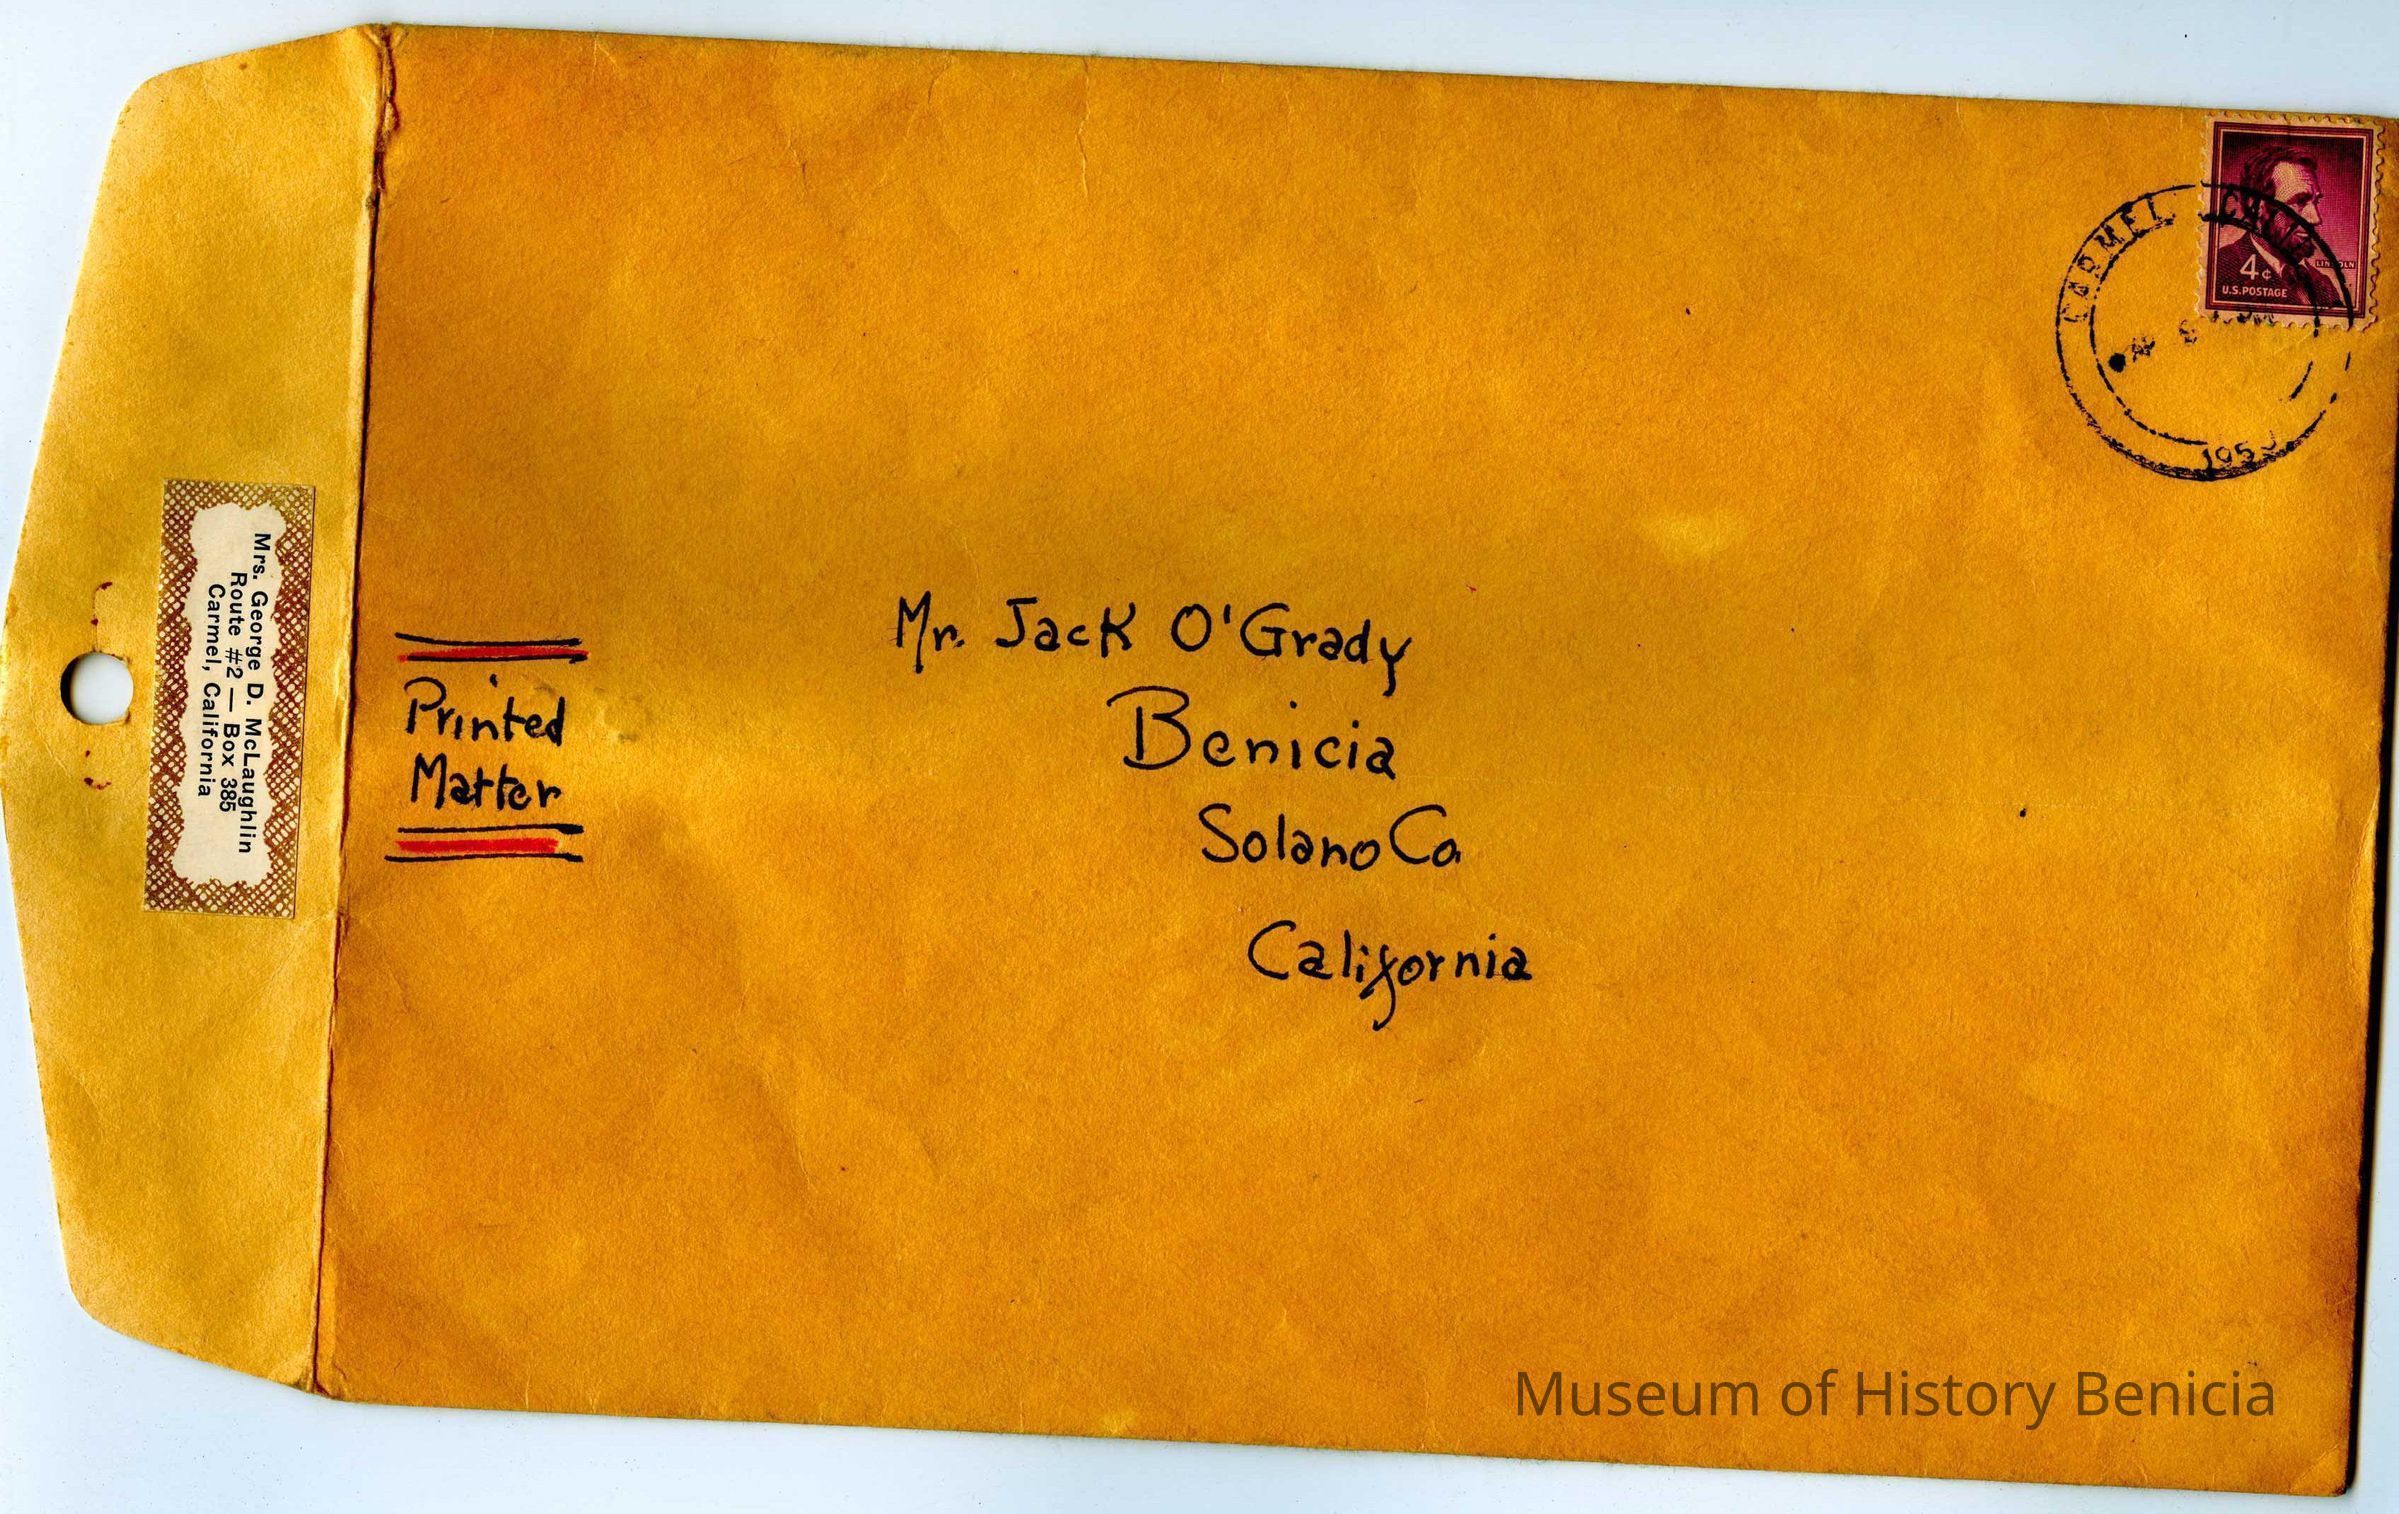 Mrs. George D. McLaughlin
Route #2 — Box 385
Carmel, California
Printed
Matter
Mr. Jack O'Grady
Benicia
Solano Co.
California
CARMEL
4¢
LINCOLN
U.S.POSTAGE
Museum of History Benicia